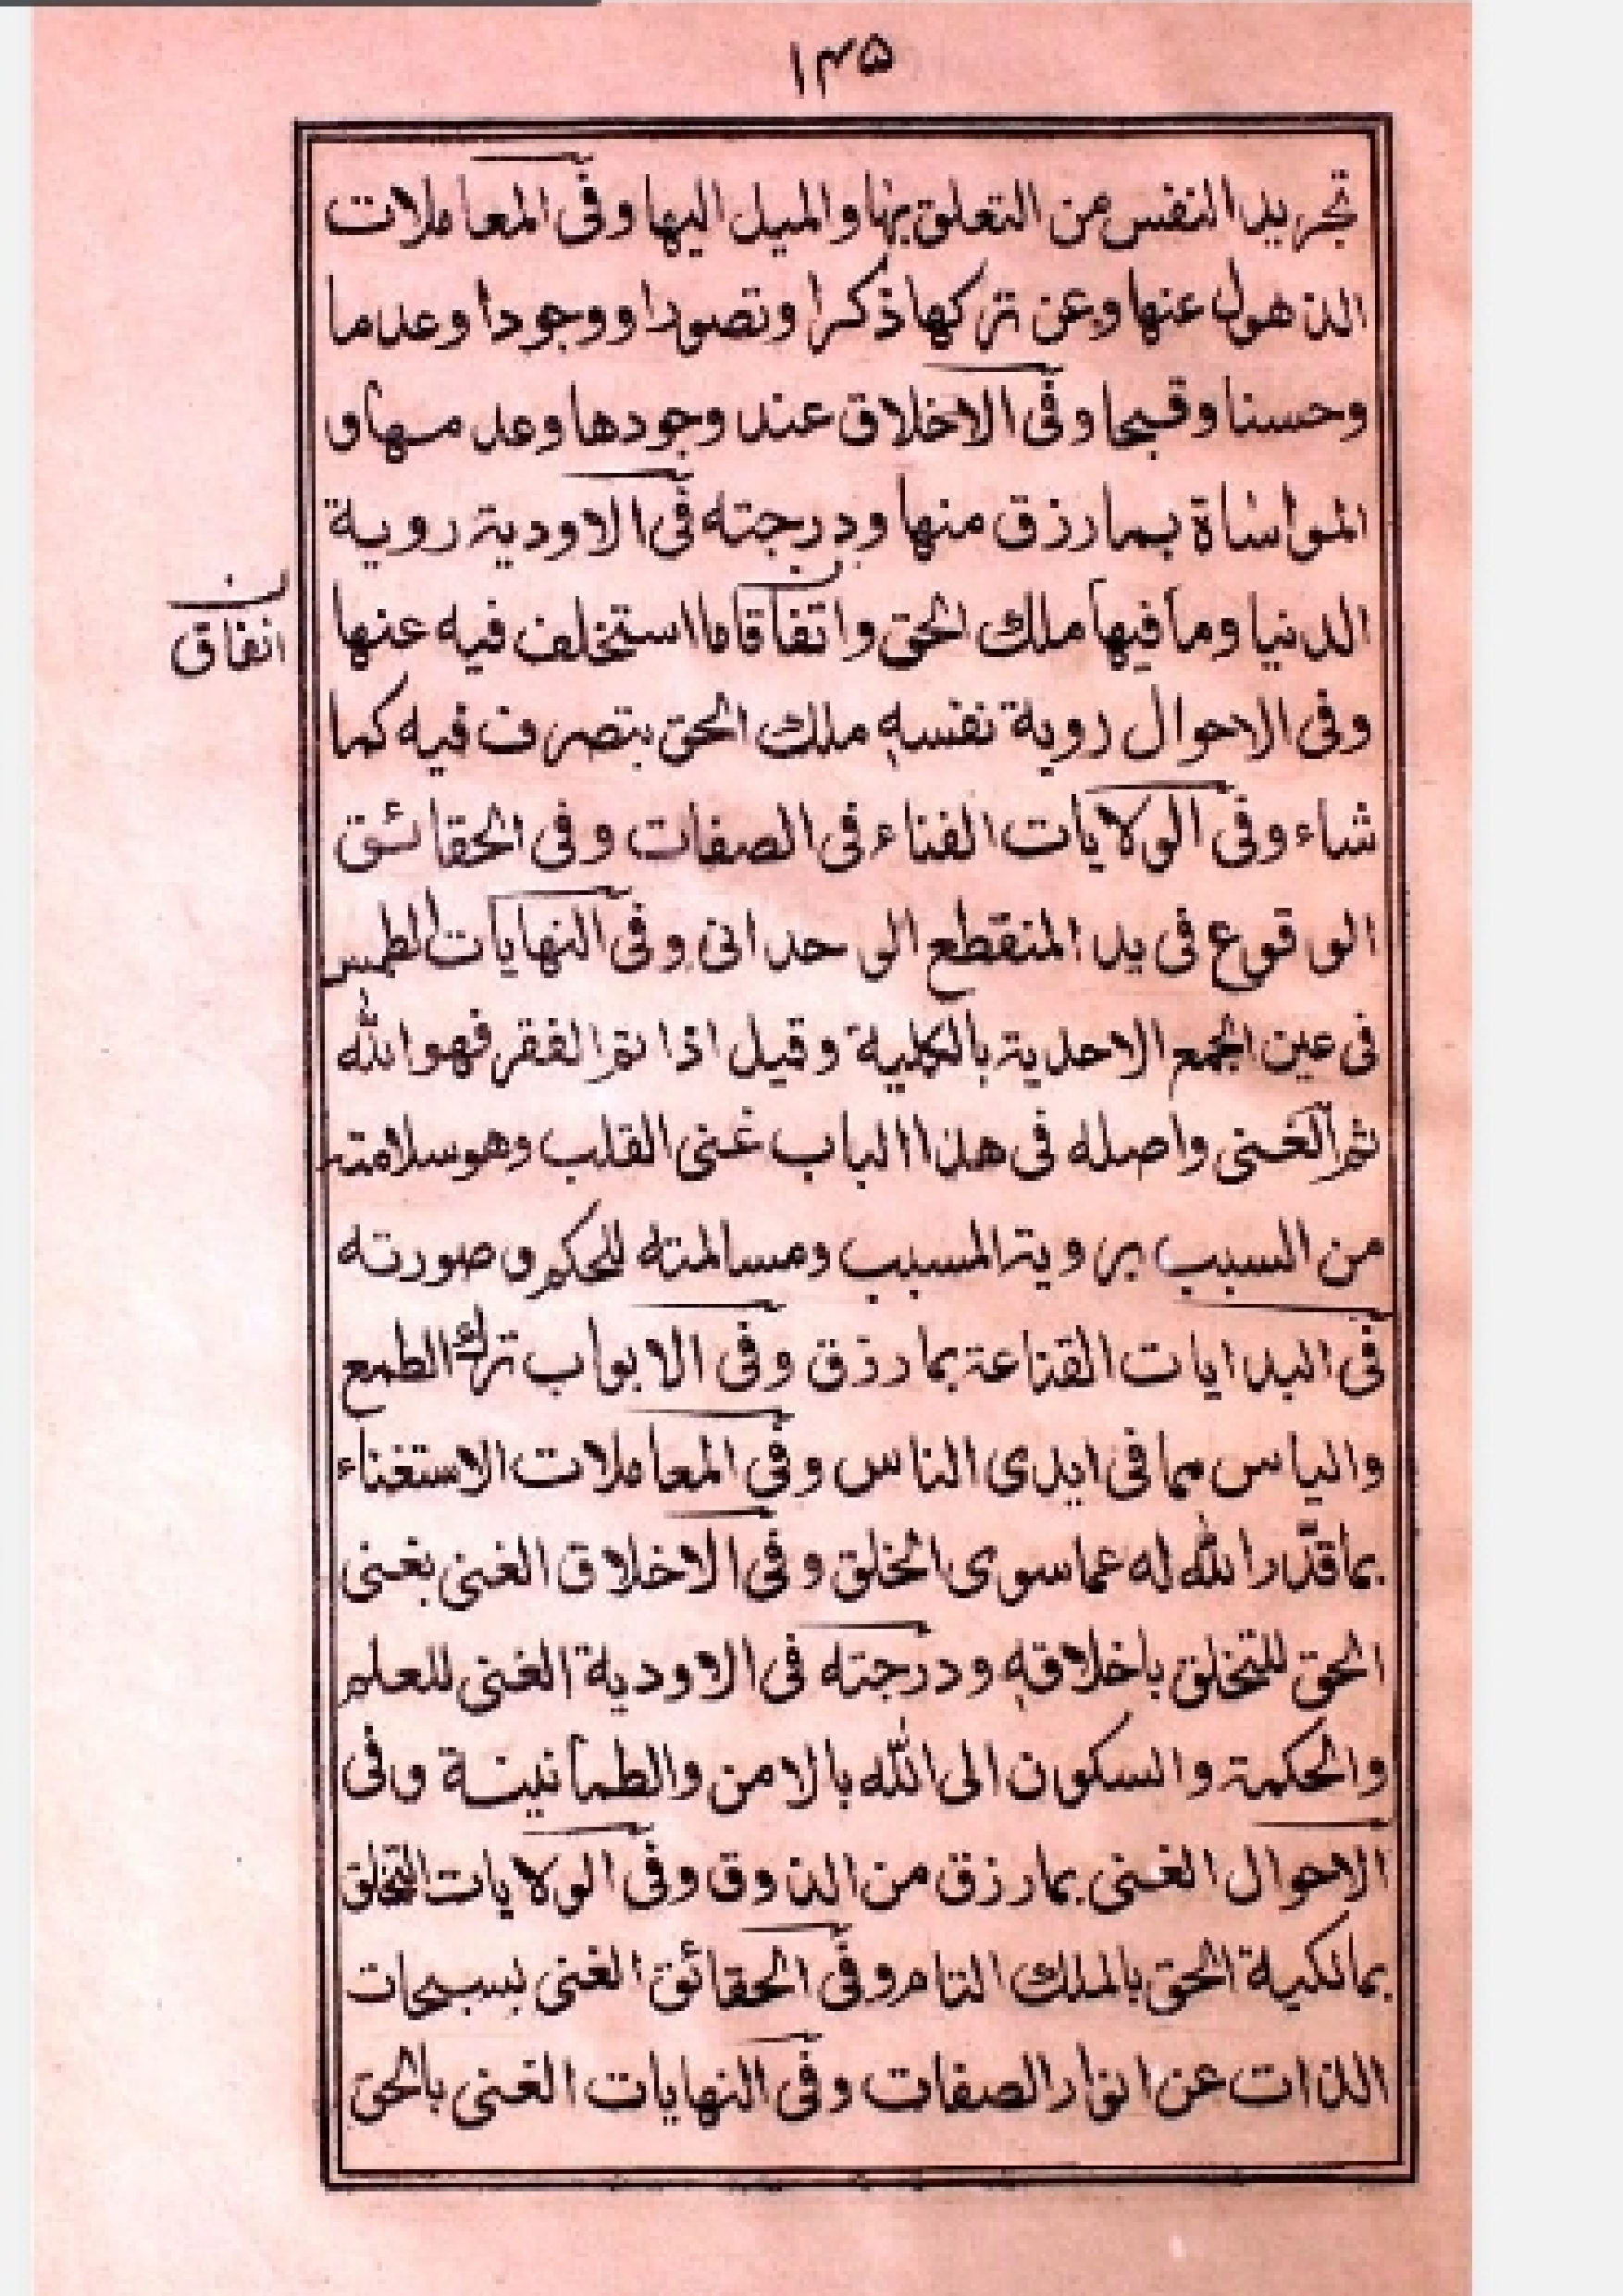 ١٣٥
تجريد النفس من التعلق بها والميل اليها وفى المعاملات
الذهول عنها وعن تركها ذكرا وتصورا ووجودا وعدما
وحسنا وقبحا وفى الاخلاق عند وجودها وعدمها و
المواساة بما رزق منها ودرجته فى الاودية روية
الدنيا وما فيها ملك الحق واتفاقاما استخلف فيه عنها
ن
انفاق
وفى الاحوال روية نفسه ملك الحق يتصرف فيه كما
شاء وفى الولايات الفناء فى الصفات وفى الحقائق
الوقوع فى يد المنقطع الوحدانى وفى النهايات الطمس
فى عين الجمع الاحدية بالكلية وقيل اذا تم الفقر فهو الله
ثم الغنى واصله فى هذا الباب غنى القلب وهو سلامته
من السبب بروية المسبب ومسالمته للحكم وصورته
فى البدايات القناعة بما رزق وفى الابواب ترك الطمع
والياس مما فى ايدى الناس وفى المعاملات الاستغناء
بما قدّر الله له عما سوى الخلق وفى الاخلاق الغنى بغنى
الحق للتخلق باخلاقه ودرجته فى الاودية الغنى للعلم
والحكمة والسكون الى الله بالامن والطمأنينة وفى
الاحوال الغنى بما رزق من الذوق وفى الولايات التخلق
بمالكية الحق بالملك التام وفى الحقائق الغنى بسبحات
الذات عن انوار الصفات وفى النهايات الغنى بالحق